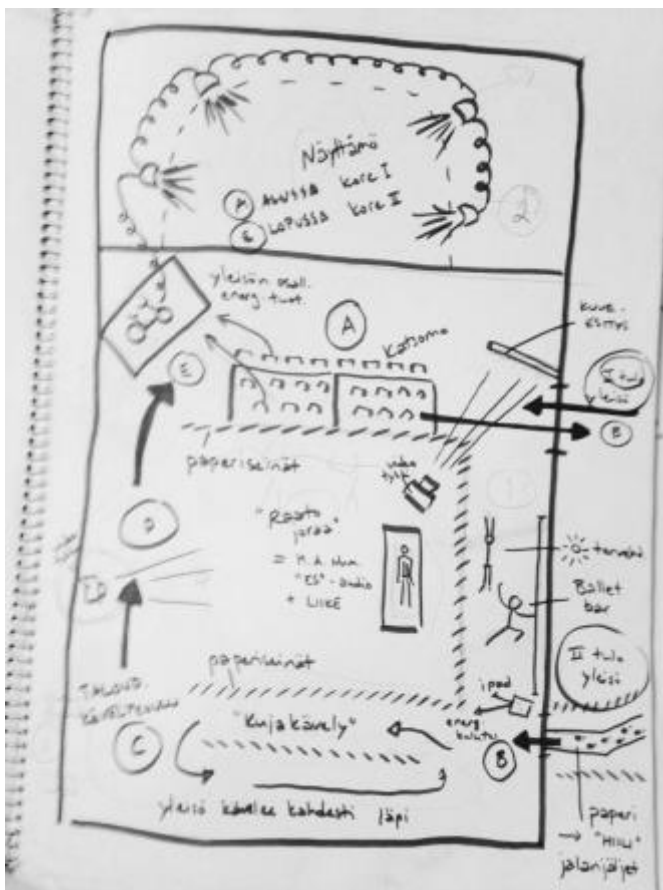 Näyttämö
A ALUSSA kore I
E LOPUSSA kore II
yleisön osall.
energ. tuot.
A
Katsomo
KUVA-
ESITYS
I tulo
yleisö
B
E
paperiseinät
video
"Raato
jaraa"
"ES"-audio
+ LIIKE
D
tervehd
Ballet
bar
II tulo
yleisö
ipad
energ.
kulutus
paperiseinät
"Kujakävely"
C
B
yleisö kävelee kahdesti läpi
paperi
→ "HIILI"
jalanjäljet